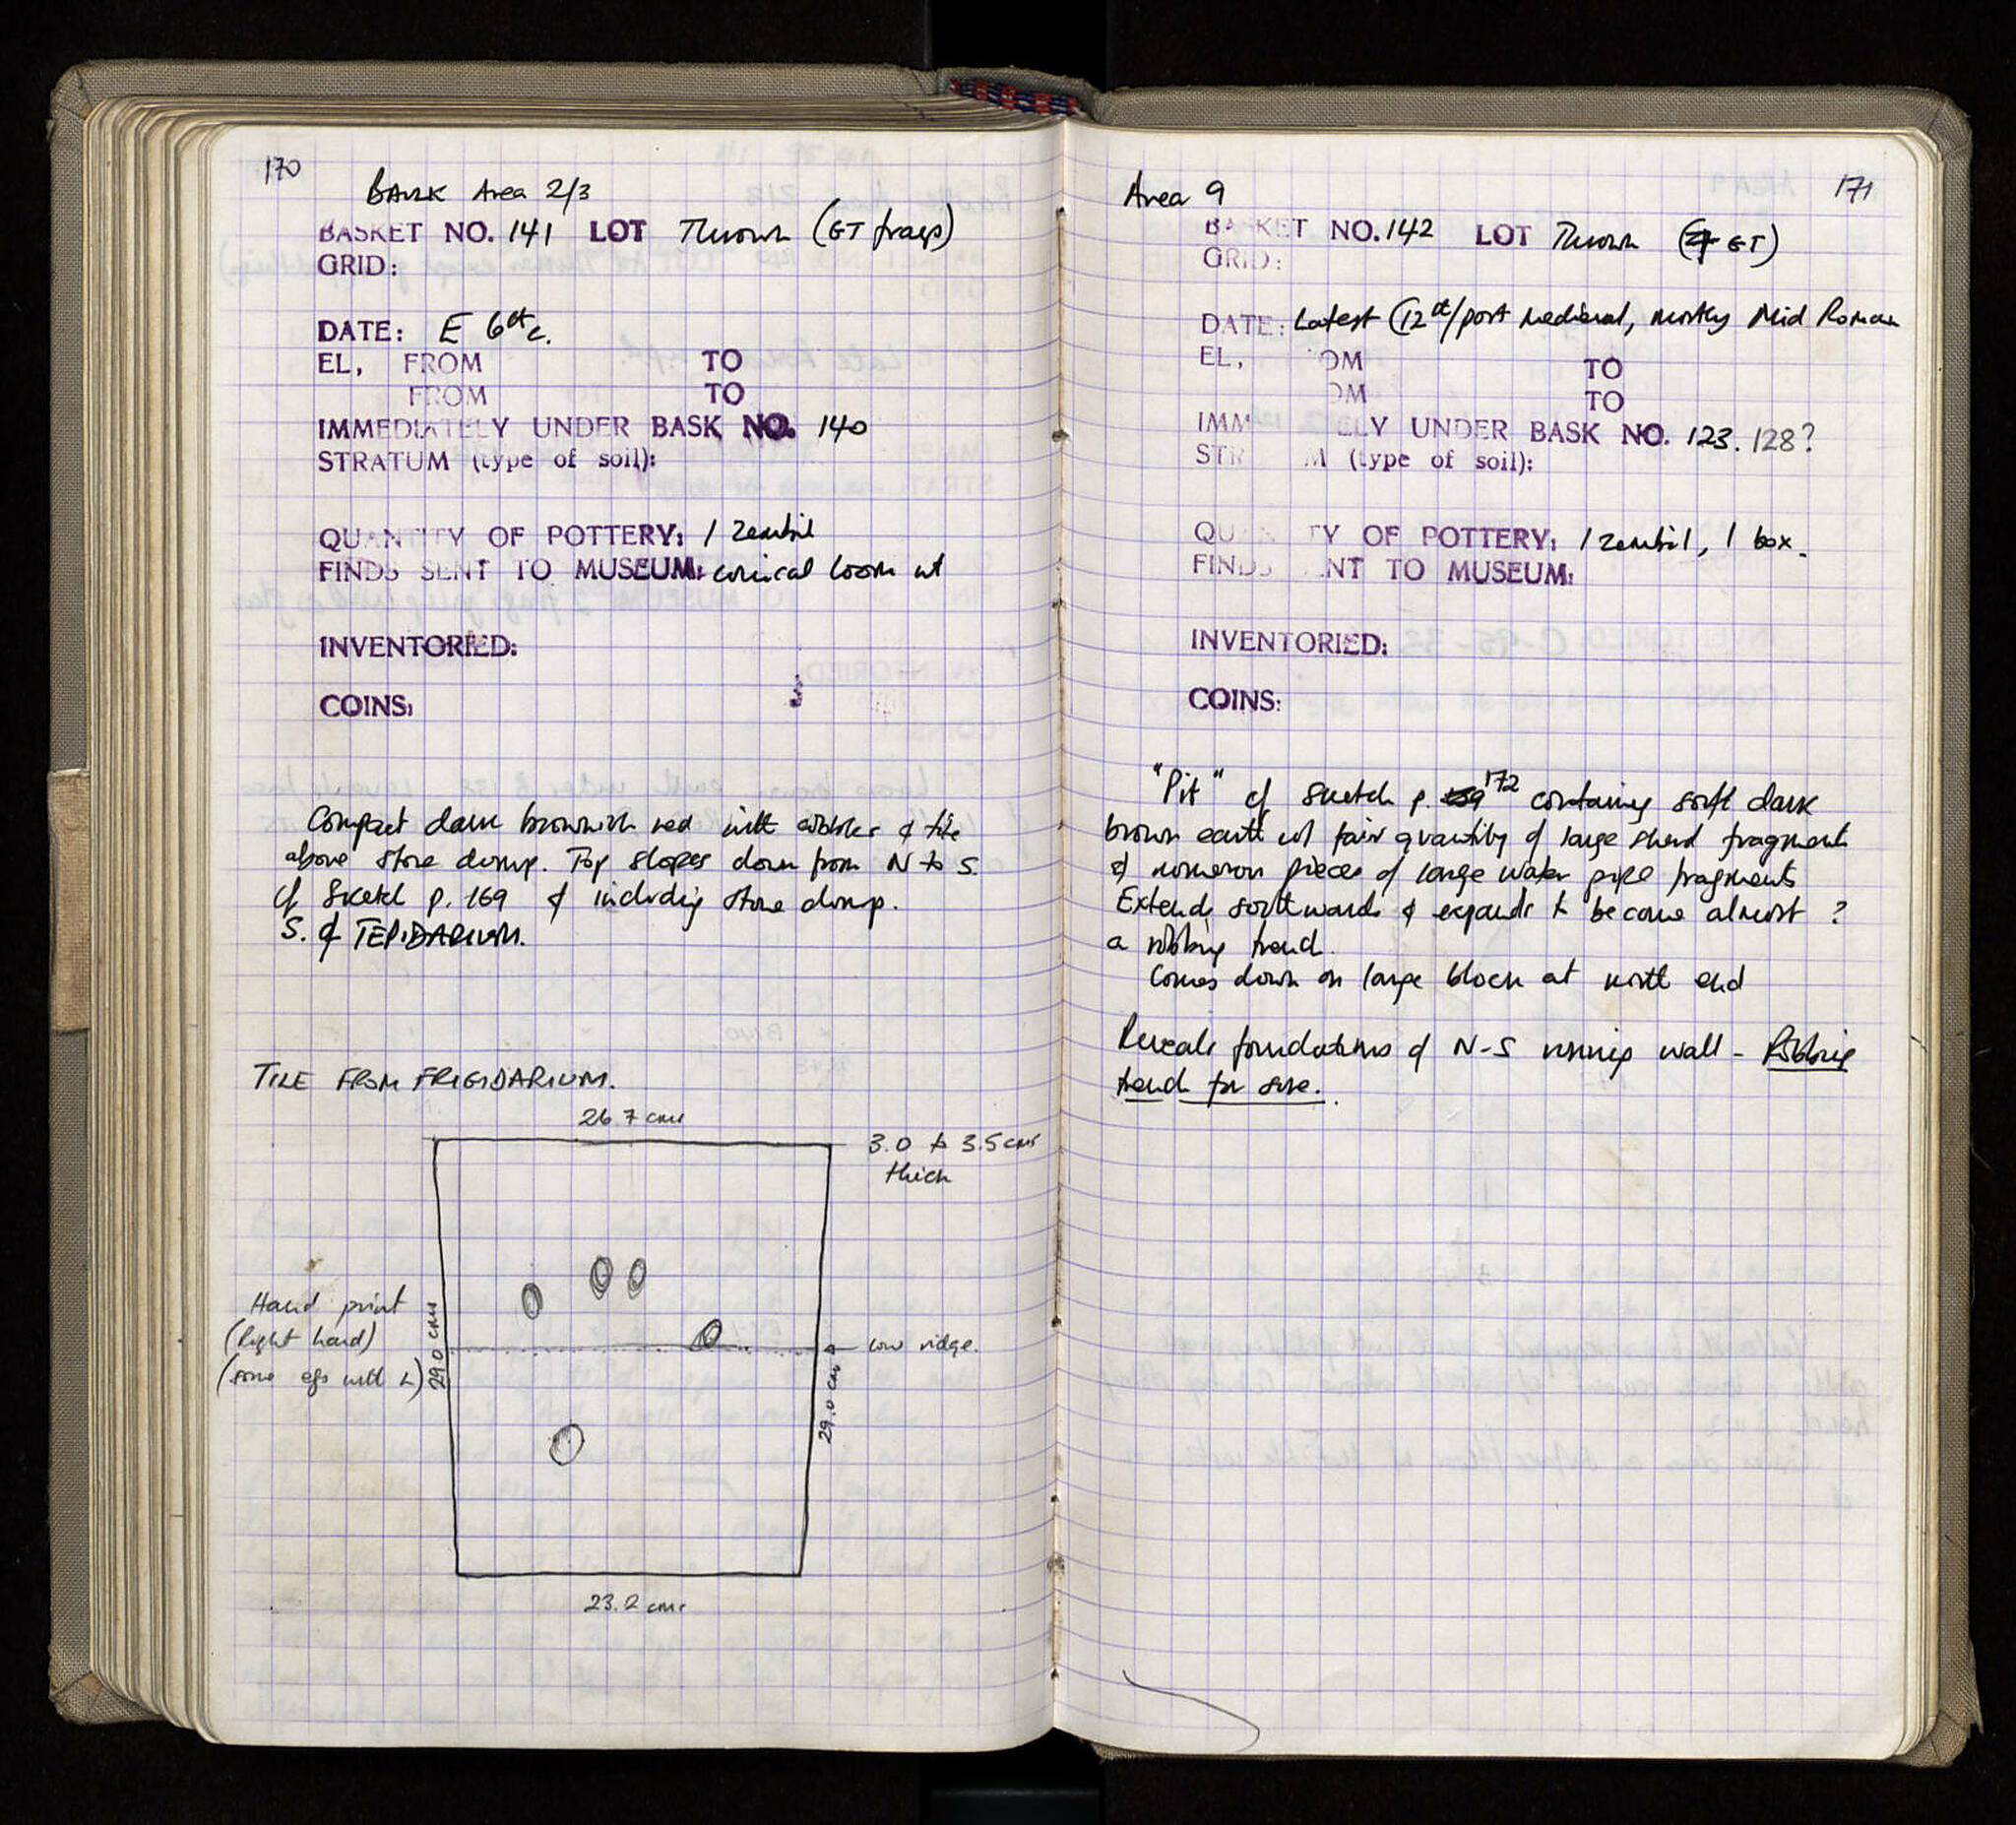 170
BAULK Area 2/3
BASKET NO. 141 LOT Thrown (GT frags)
GRID:
DATE: E 6th c.
EL, FROM TO
FROM TO
IMMEDIATELY UNDER BASK NO. 140
STRATUM (type of soil):
QUANTITY OF POTTERY: 1 zembil
FINDS SENT TO MUSEUM: conical loom wt
INVENTORIED:
COINS:
Compact dark brownish red with cobbles & tile
above stone dump. Top slopes down from N to S.
cf Sketch p. 169 & including stone dump.
S. of TEPIDARIUM.
TILE FROM FRIGIDARIUM.
26.7 cms
3.0 to 3.5 cms
thick
Hand print
(Right hand)
(some egs with L)
29.0 cms
low ridge.
29.0 cms
23.2 cms
Area 9
171
BASKET NO. 142 LOT Thrown (GT)
GRID:
DATE: Latest (12th/post medieval, mostly Mid Roman
EL, OM TO
OM TO
IMM ELY UNDER BASK NO. 123. 128?
STR M (type of soil):
QU TY OF POTTERY: 1 zembil, 1 box.
FINDS ENT TO MUSEUM:
INVENTORIED:
COINS:
"Pit" cf sketch p. 172 containing soft dark
brown earth w/ fair quantity of large sherd fragments
& numerous pieces of large water pipe fragments
Extends southwards & expands to become almost ?
a robbing trench.
Comes down on large block at north end
Reveals foundations of N-S running wall - Robbing
trench for sure.